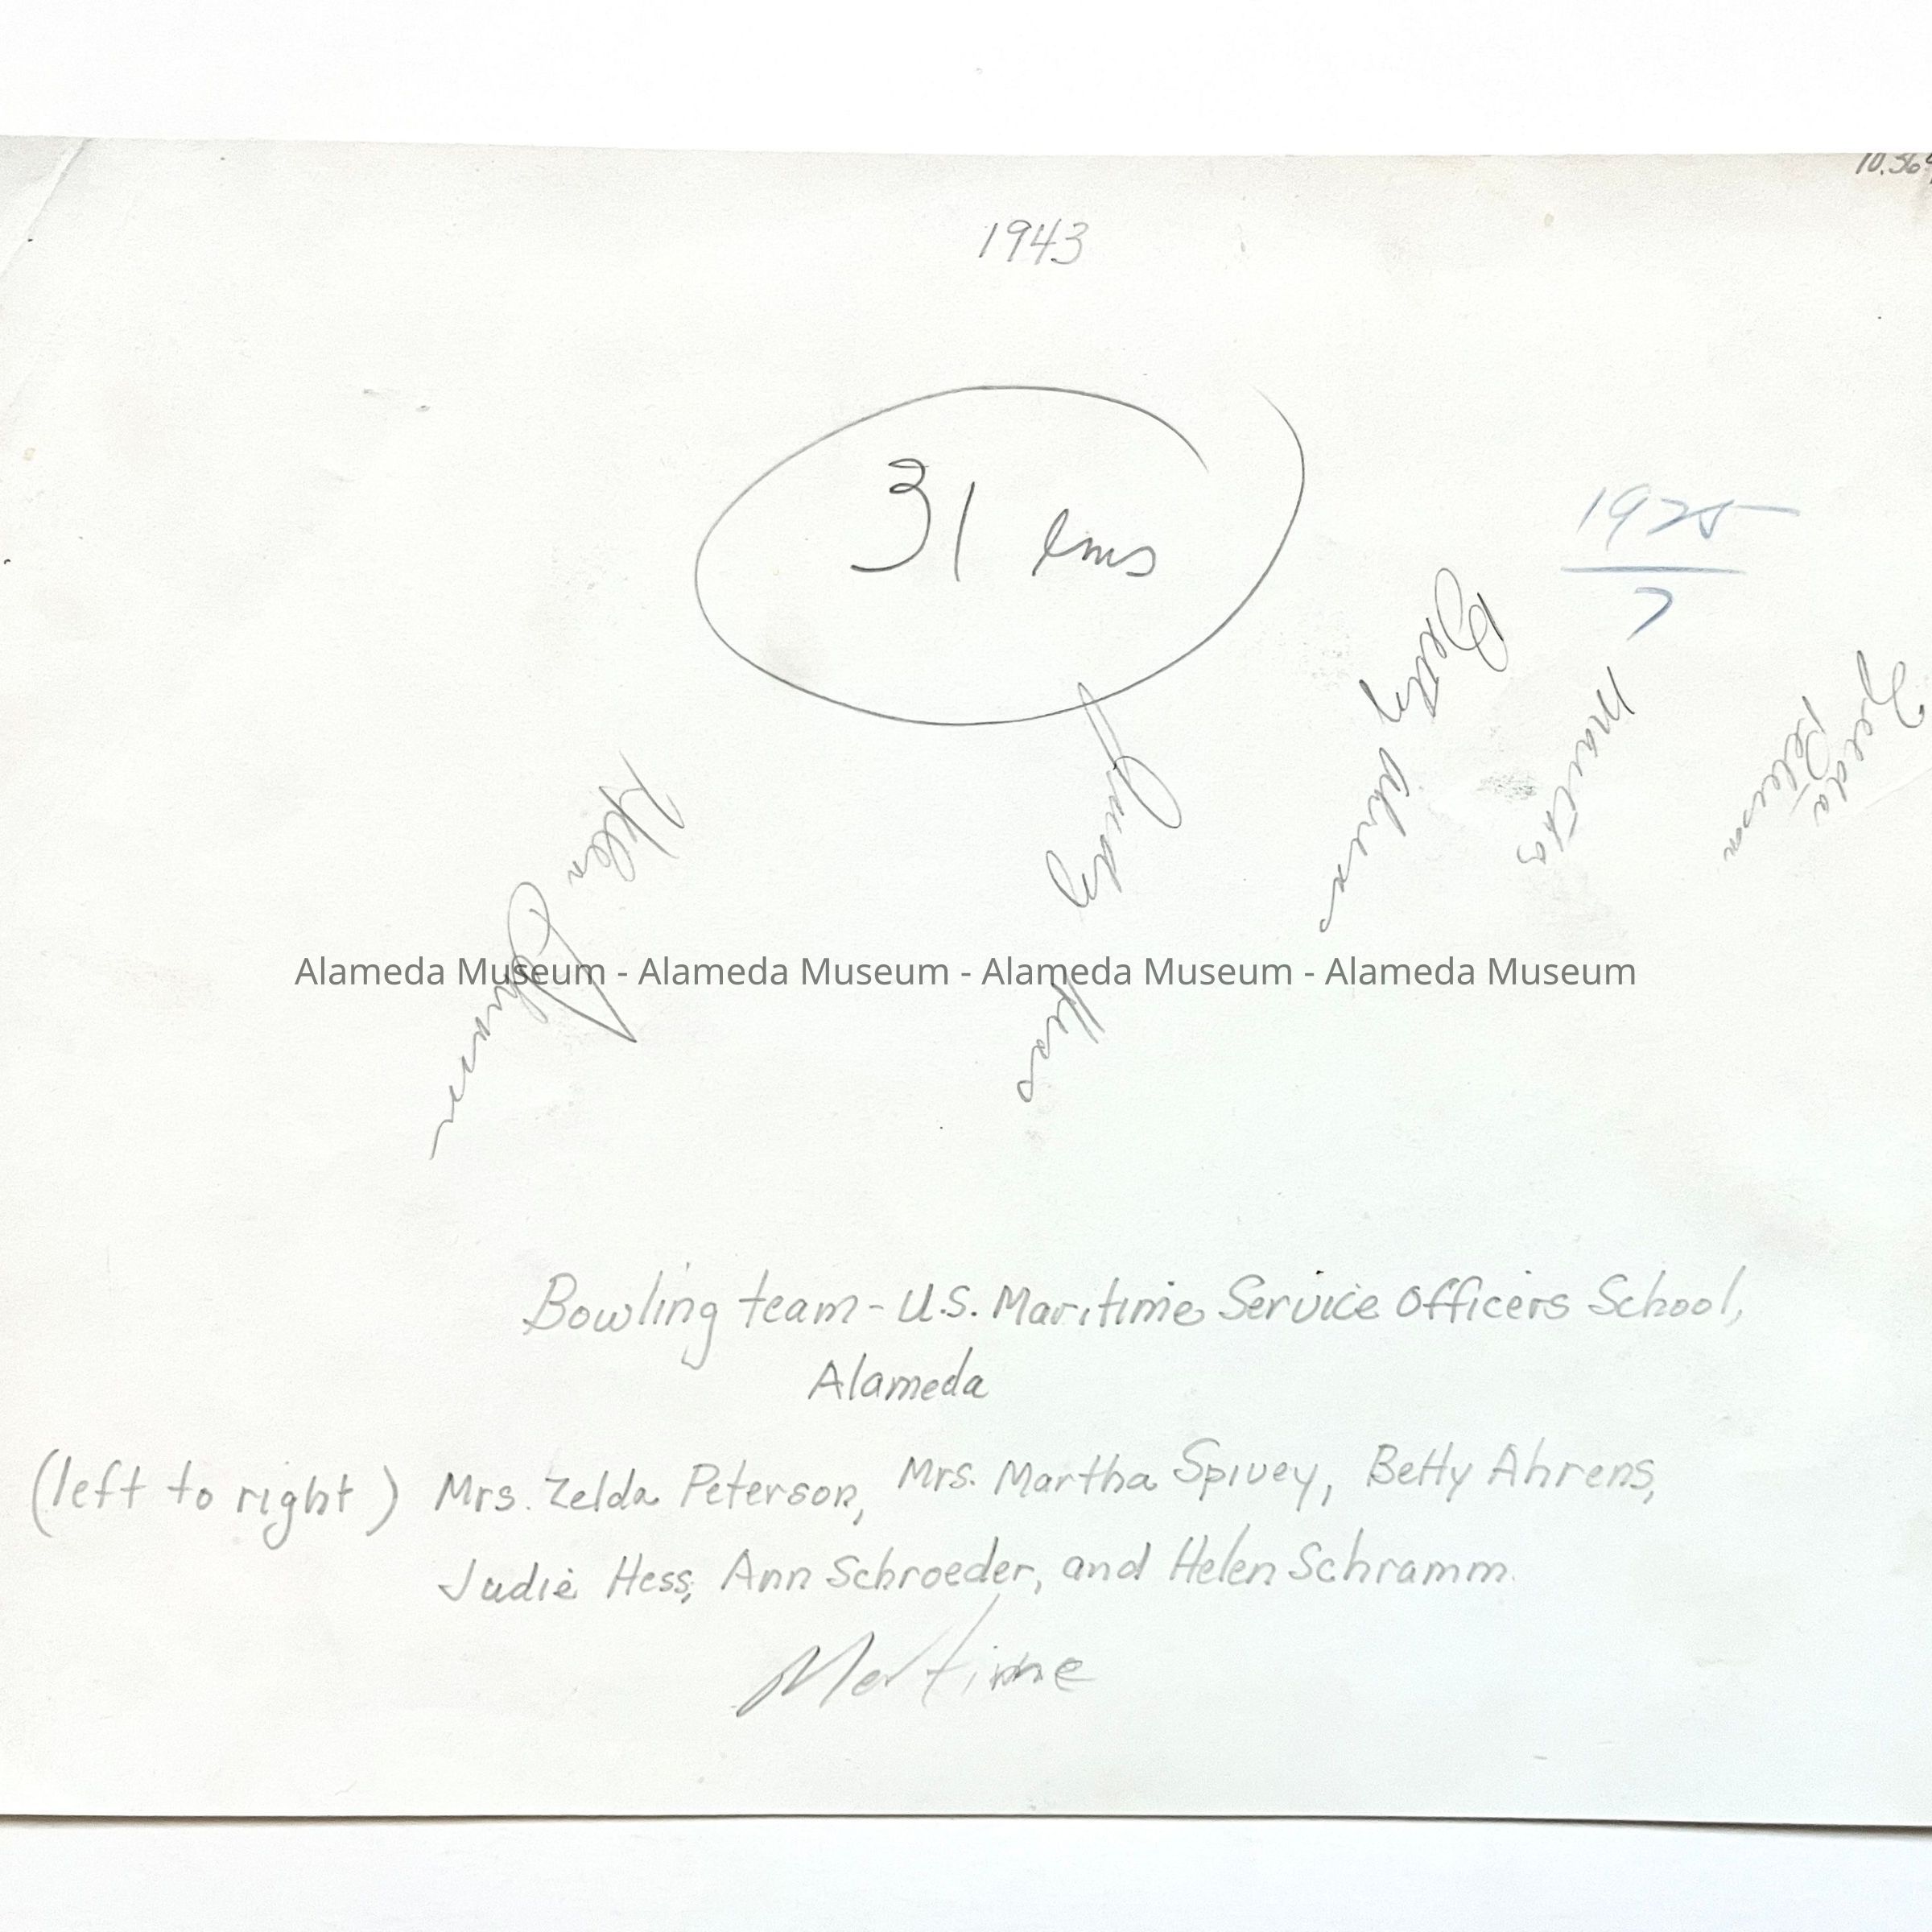 10.369
1943
31 ems
1925
7
Betty Ahrens
Martha
Zelda
Peterson
Judy Hess
Helen
Schramm
Alameda Museum - Alameda Museum - Alameda Museum - Alameda Museum
Bowling team - U.S. Maritime Service Officers School,
Alameda
(left to right) Mrs. Zelda Peterson, Mrs. Martha Spivey, Betty Ahrens,
Judie Hess, Ann Schroeder, and Helen Schramm.
Mertime